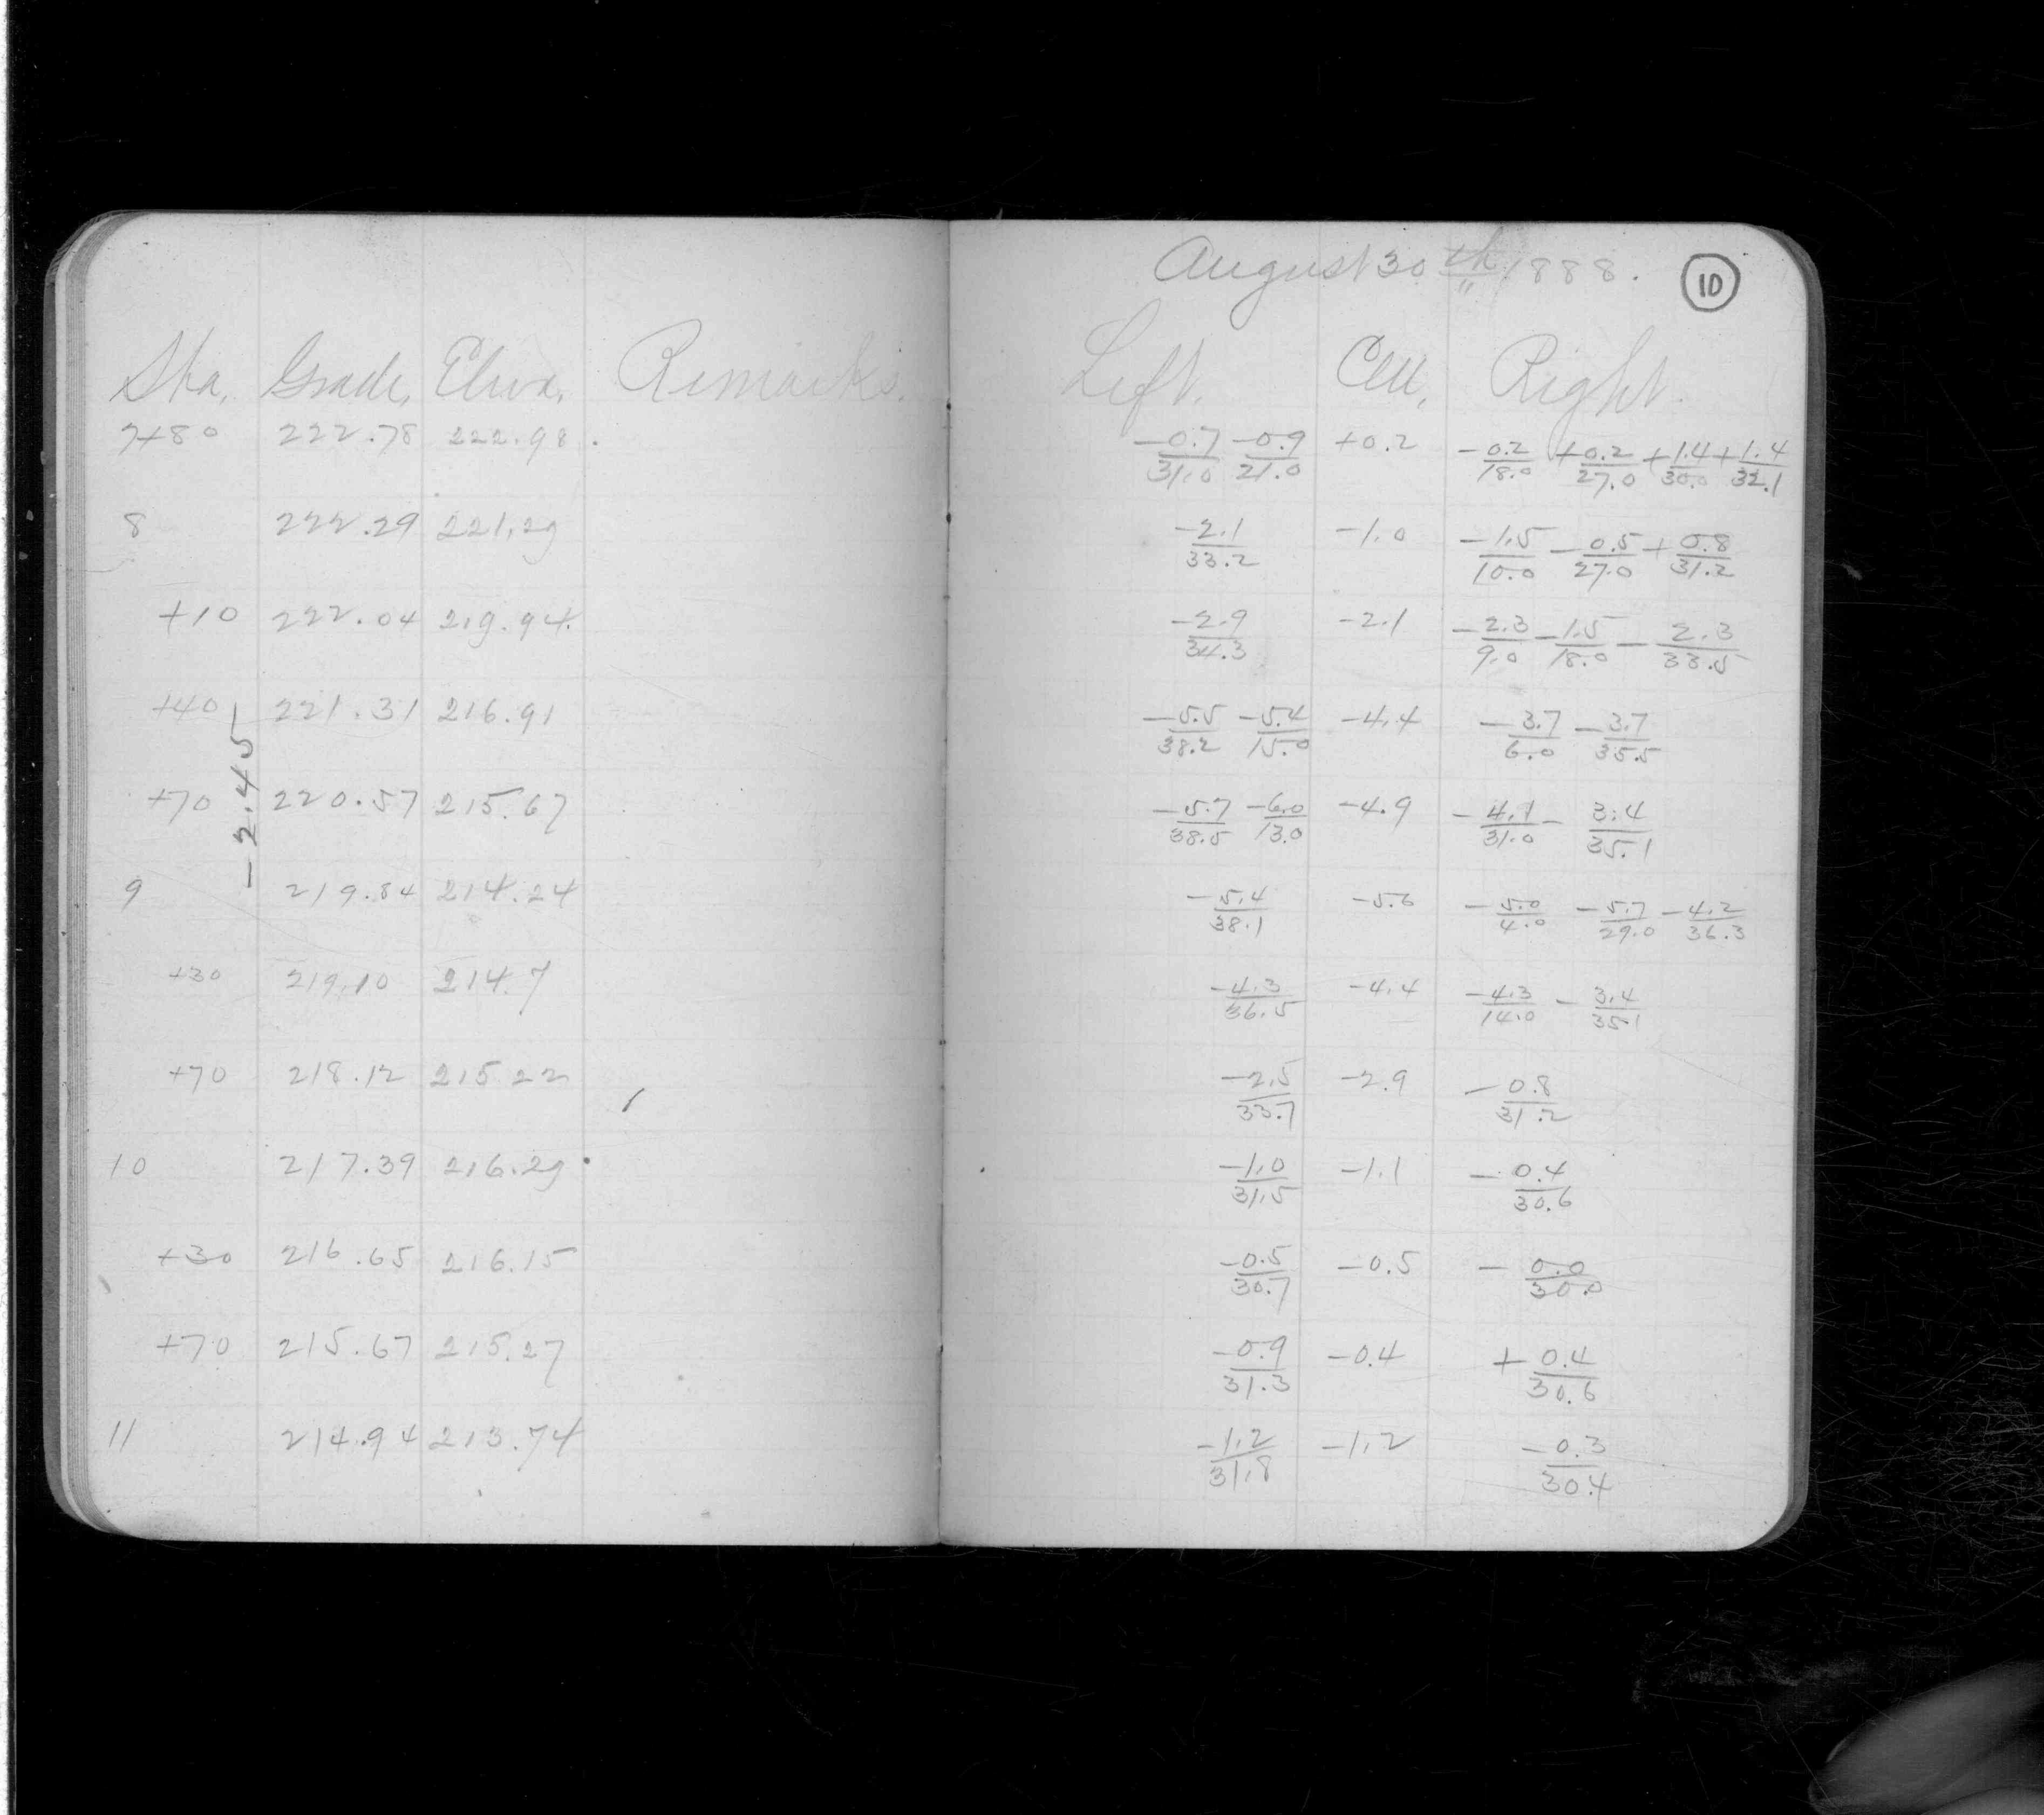 August 30th 1888.
10
Sta. Grade, Elva. Remarks. Left. Cen. Right.
7+80 222.78 222.98 -0.7/31.0 -0.9/21.0 +0.2 -0.2/18.0 +0.2/27.0 +1.4/30.0 +1.4/32.1
8 222.29 221.29 -2.1/33.2 -1.0 -1.5/10.0 -0.5/27.0 +0.8/31.2
+10 222.04 219.94 -2.9/34.3 -2.1 -2.3/9.0 -1.5/18.0 -2.3/33.5
+40 221.31 216.91 -5.5/38.2 -5.4/15.0 -4.4 -3.7/6.0 -3.7/35.5
-2.45
+70 220.57 215.67 -5.7/38.5 -6.0/13.0 -4.9 -4.1/31.0 -3.4/35.1
9 219.84 214.24 -5.4/38.1 -5.6 -5.0/4.0 -5.7/29.0 -4.2/36.3
+30 219.10 214.7 -4.3/36.5 -4.4 -4.3/14.0 -3.4/35.1
+70 218.12 215.22 -2.5/33.7 -2.9 -0.8/31.2
10 217.39 216.29 -1.0/31.5 -1.1 -0.4/30.6
+30 216.65 216.15 -0.5/30.7 -0.5 -0.0/30.0
+70 215.67 215.27 -0.9/31.3 -0.4 +0.4/30.6
11 214.94 213.74 -1.2/31.8 -1.2 -0.3/30.4